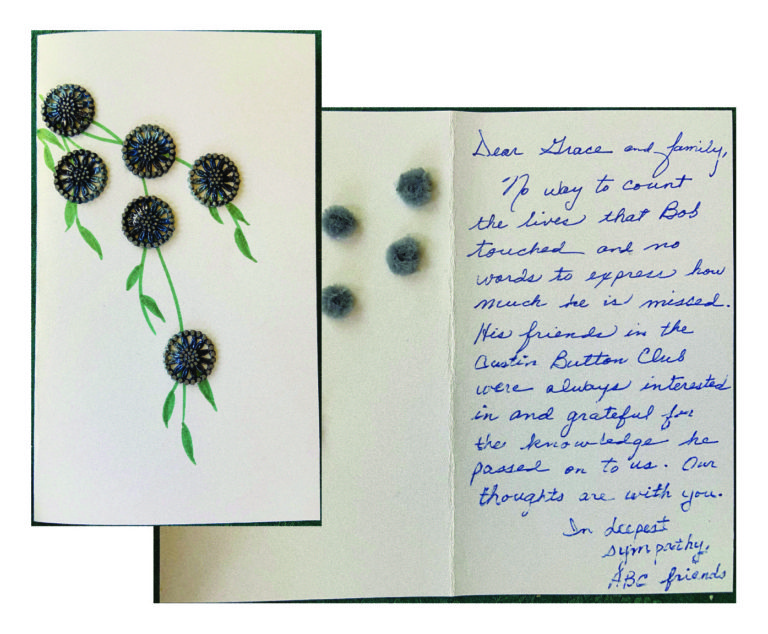 Dear Grace and family,
No way to count
the lives that Bob
touched and no
words to express how
much he is missed.
His friends in the
Austin Button Club
were always interested
in and grateful for
the knowledge he
passed on to us. Our
thoughts are with you.
In deepest
sympathy,
ABC friends